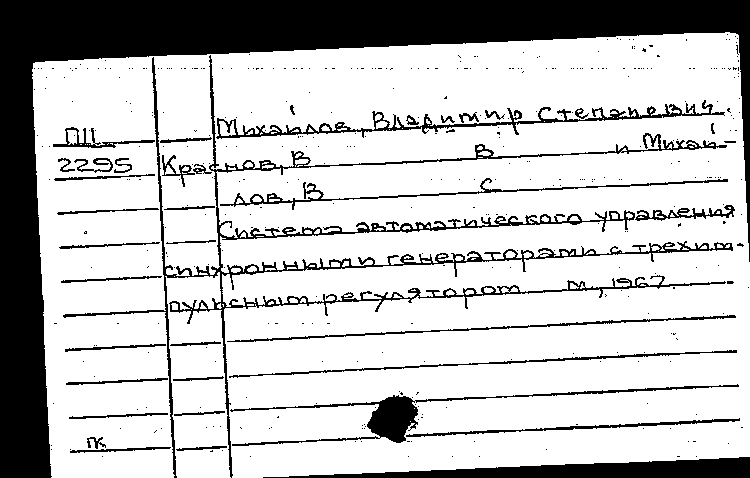 Михайлов, Владимир Степанович.
ПЩ
2295 Краснов, В В и Михай-
лов, В С
Система автоматического управления
синхронными генераторами с трехим-
пульсным регулятором М., 1967.
пк